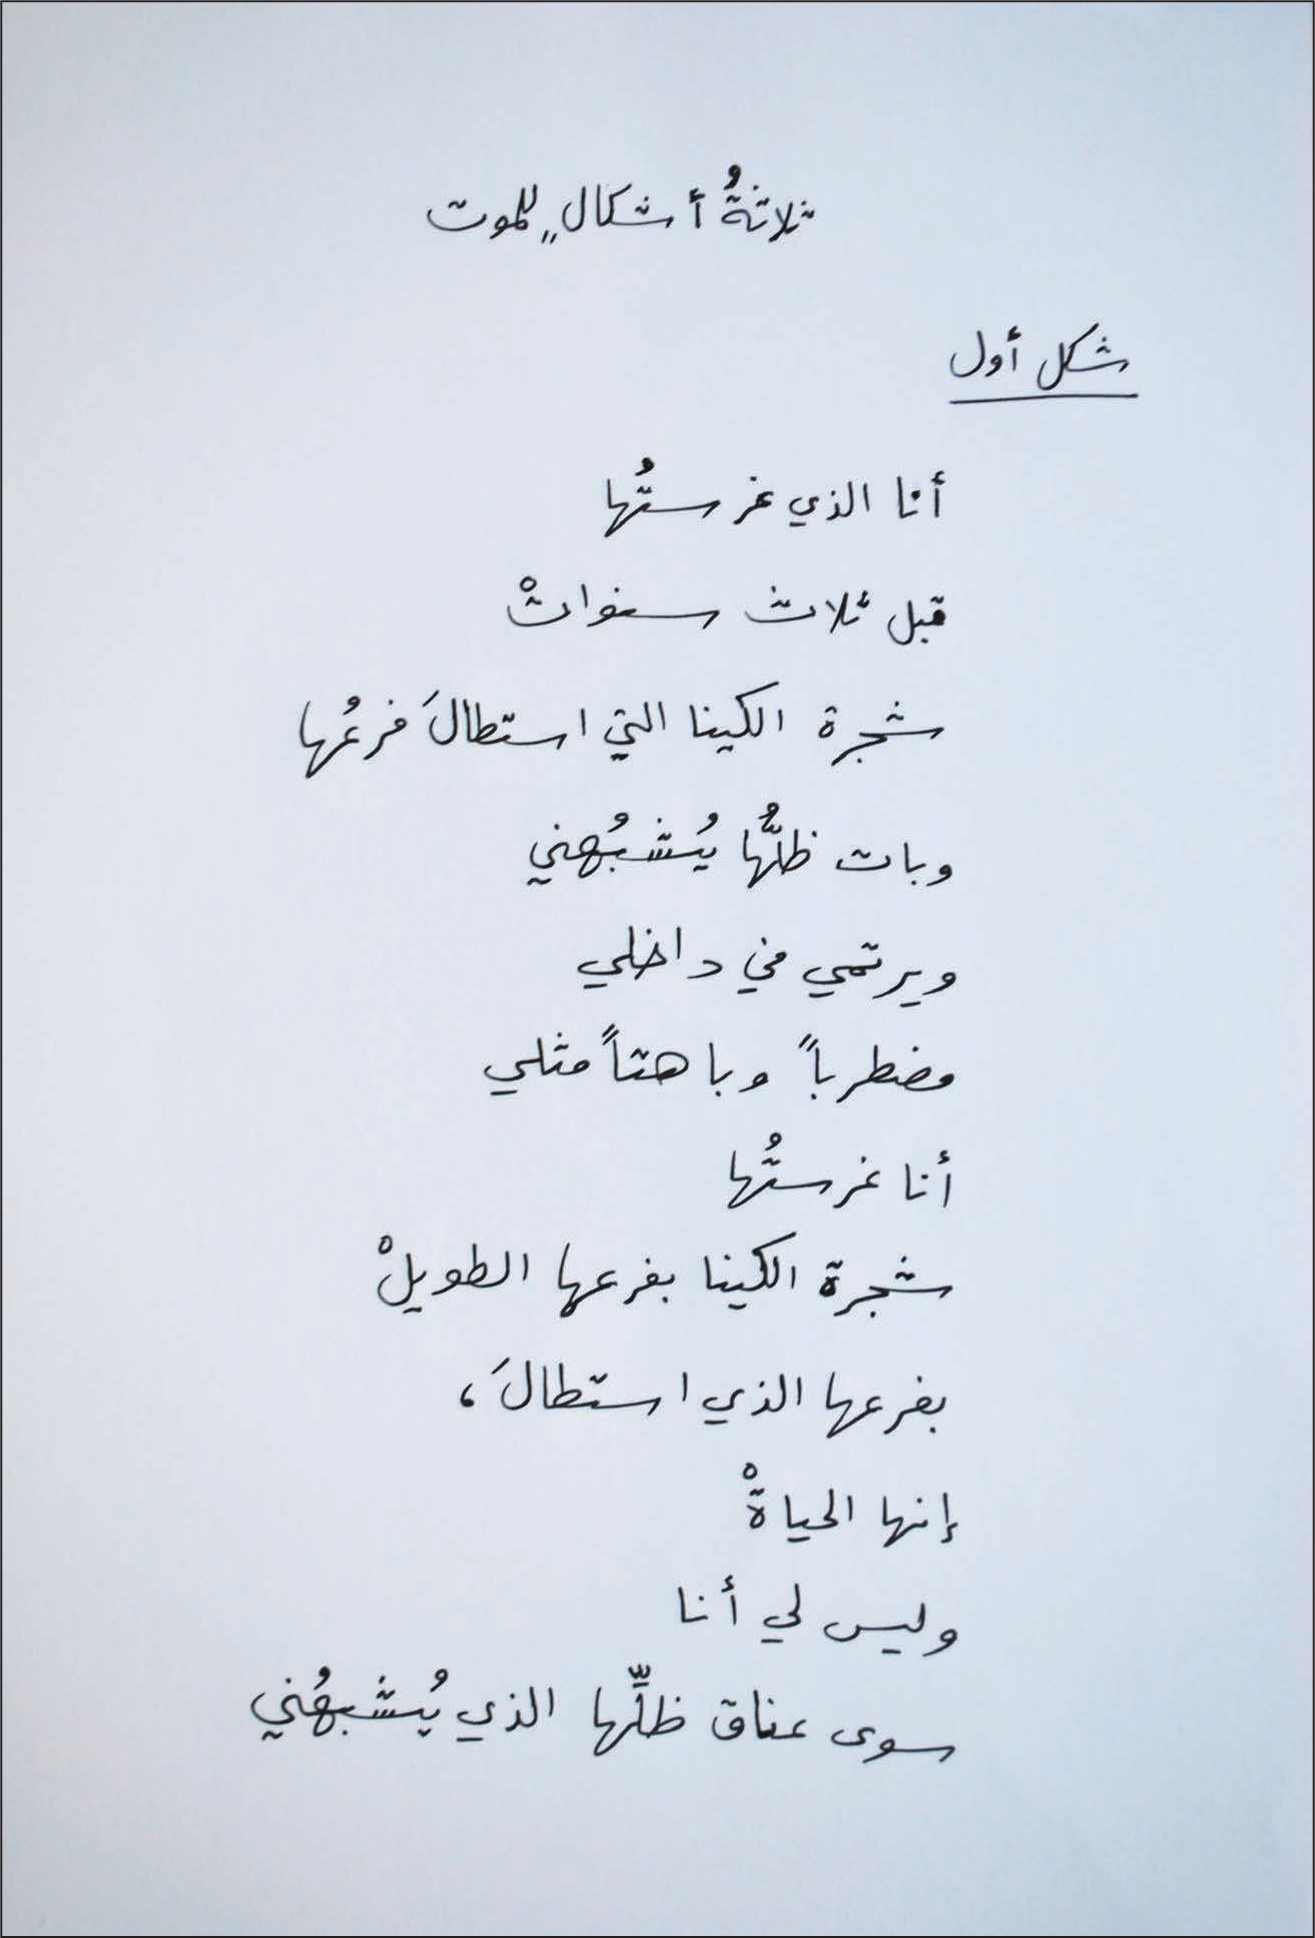 ثلاثةُ أشكالٍ للموت
شكل أول
أنا الذي غرستُها
قبل ثلاث سنواتْ
شجرة الكينا التي استطالَ فرعُها
وبات ظلُّها يُشبُهني
ويرتمي في داخلي
مضطرباً وباهتاً مثلي
أنا غرستُها
شجرة الكينا بفرعها الطويلْ
بفرعها الذي استطالَ،
إنها الحياةْ
وليس لي أنا
سوى عناق ظلِّها الذي يُشبهُني